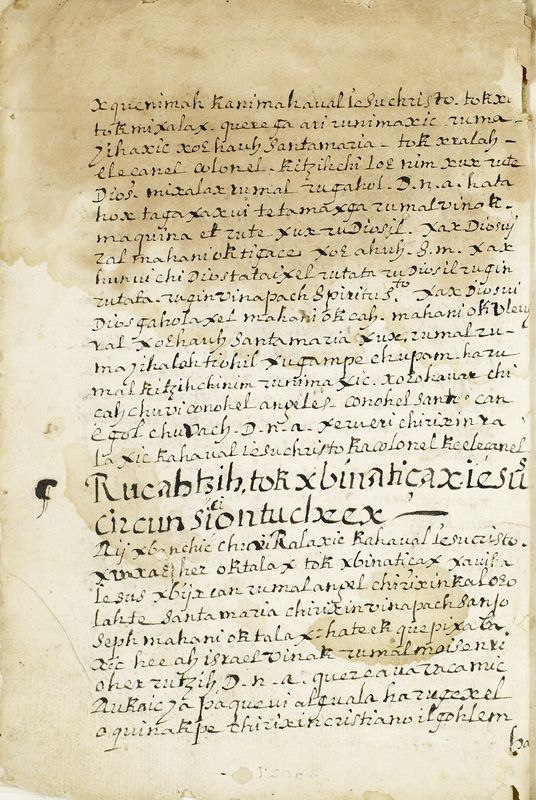 xquenimah kanimahaval Iesuchristo. tok xu
tok mixalax. quereqa ari runimaxic ruma-
yihaxic xoɛhauh Santamaria - tok xralah-
elecanel colonel. kitzihchi loɛ nim xux rute
Dios. mixalax rumal ruqahol. D. n. a. hata
hox taqaxaxui tetamaxqa rumal vinok.
maquina et rute xux ru Diosil. xax Diosuy
ral mahani oktiqace xoɛ ahuh. S. m. xax
hunui chi Dios tataixel rutata ru Diosil ruqin
rutata. ruqin vinapach Spiritu S.to xax Diosui
Dios qaholaxel mahani ok cah. mahani ok vleu
ral xoɛhauh Santamaria xux, rumal ru-
mayihaloh tiohil xuqampe chupam. haru
mal kitzihchinim runimaxic. xoɛokauar chi
cah chuvi conohel angeles. conohel santos can
eqol chuvach. D. n. a. xeveri chirixin ra
laxic kahaual Iesuchristo kacolonel kelecanel
Rucabtzih, tok xbinaticax iesus
circunsiciontucheex
Aij xbanchic chiuij Ralaxic kahaual Iesucristo.
oktalax tok xbinaticax xauisa
Iesus xbijx can rumal angel chirixin kaloɛo
lahte Santa maria chirixin vinapach Sanjo
seph mahani oktalax: hateek quepixaba
xic hee ah israel vinak rumal moisen ri
oher rutzih, D. n. a. quereava vacamic
Aukaic ya paquevi alquala haruqexel
oquinak pe chirixin cristiano ilqohlem
ha